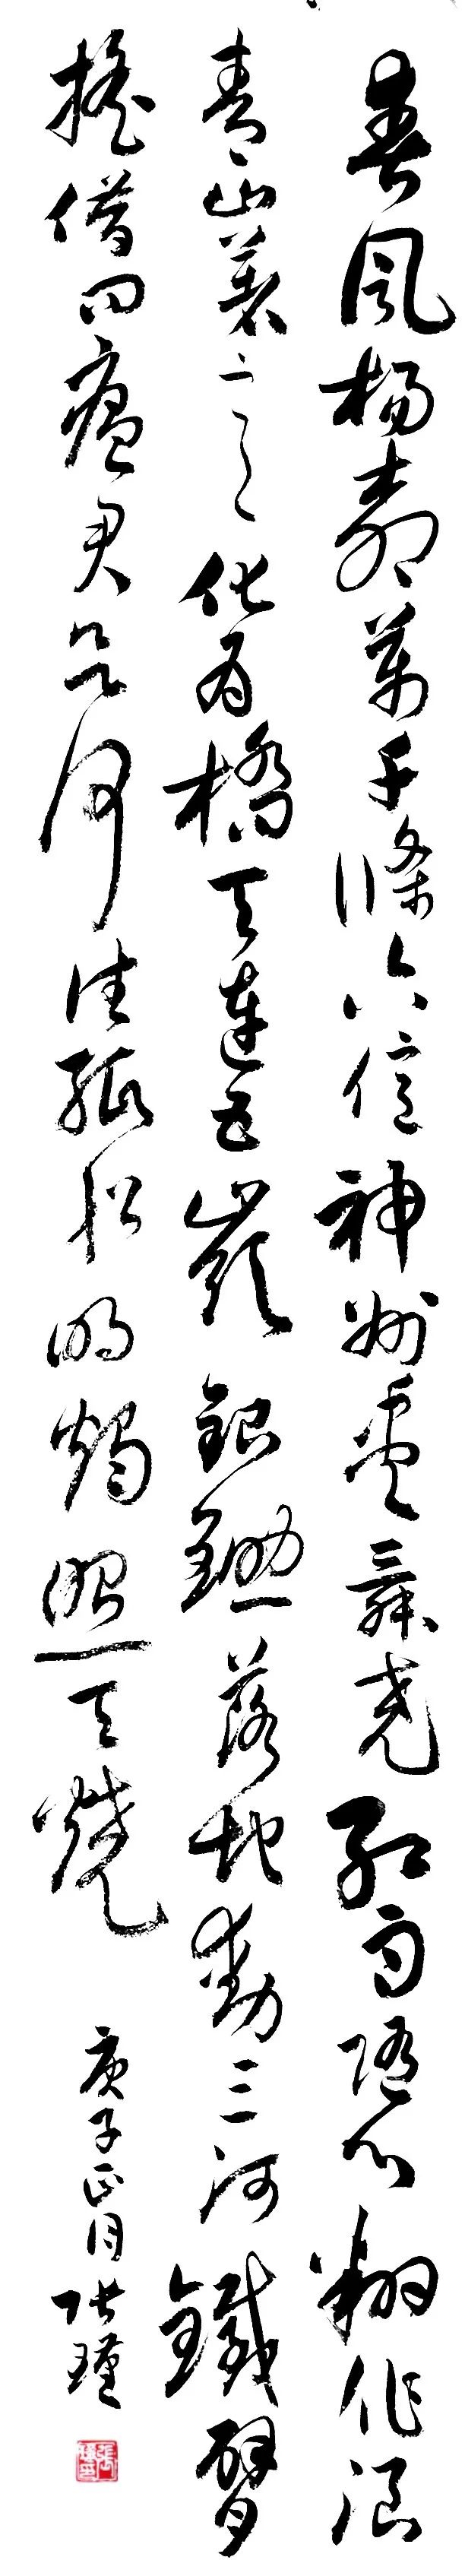 春風楊柳萬千條六億神州盡舜堯紅雨隨心翻作浪
青山著意化為橋天連五嶺銀鋤落地動三河鐵臂
搖借問瘟君欲何往紙船明燭照天燒
庚子正月張瑾